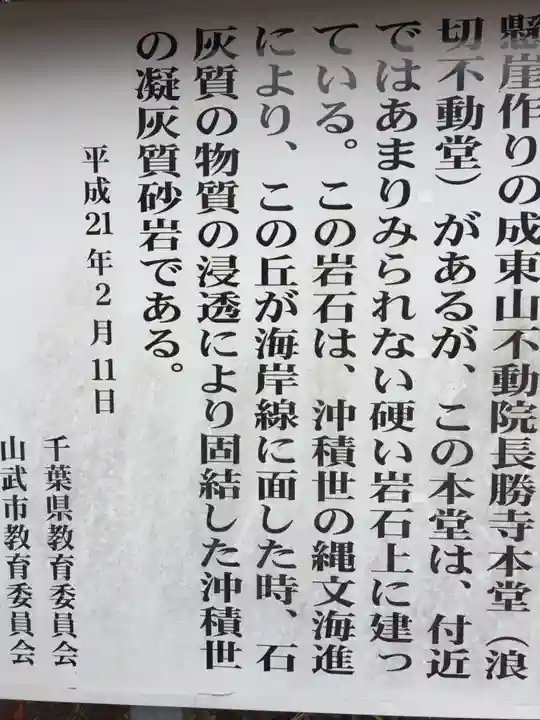 懸崖作りの成東山不動院長勝寺本堂（浪
切不動堂）があるが、この本堂は、付近
ではあまりみられない硬い岩石上に建っ
ている。この岩石は、沖積世の縄文海進
により、この丘が海岸線に面した時、石
灰質の物質の浸透により固結した沖積世
の凝灰質砂岩である。
平成21年2月11日
千葉県教育委員会
山武市教育委員会